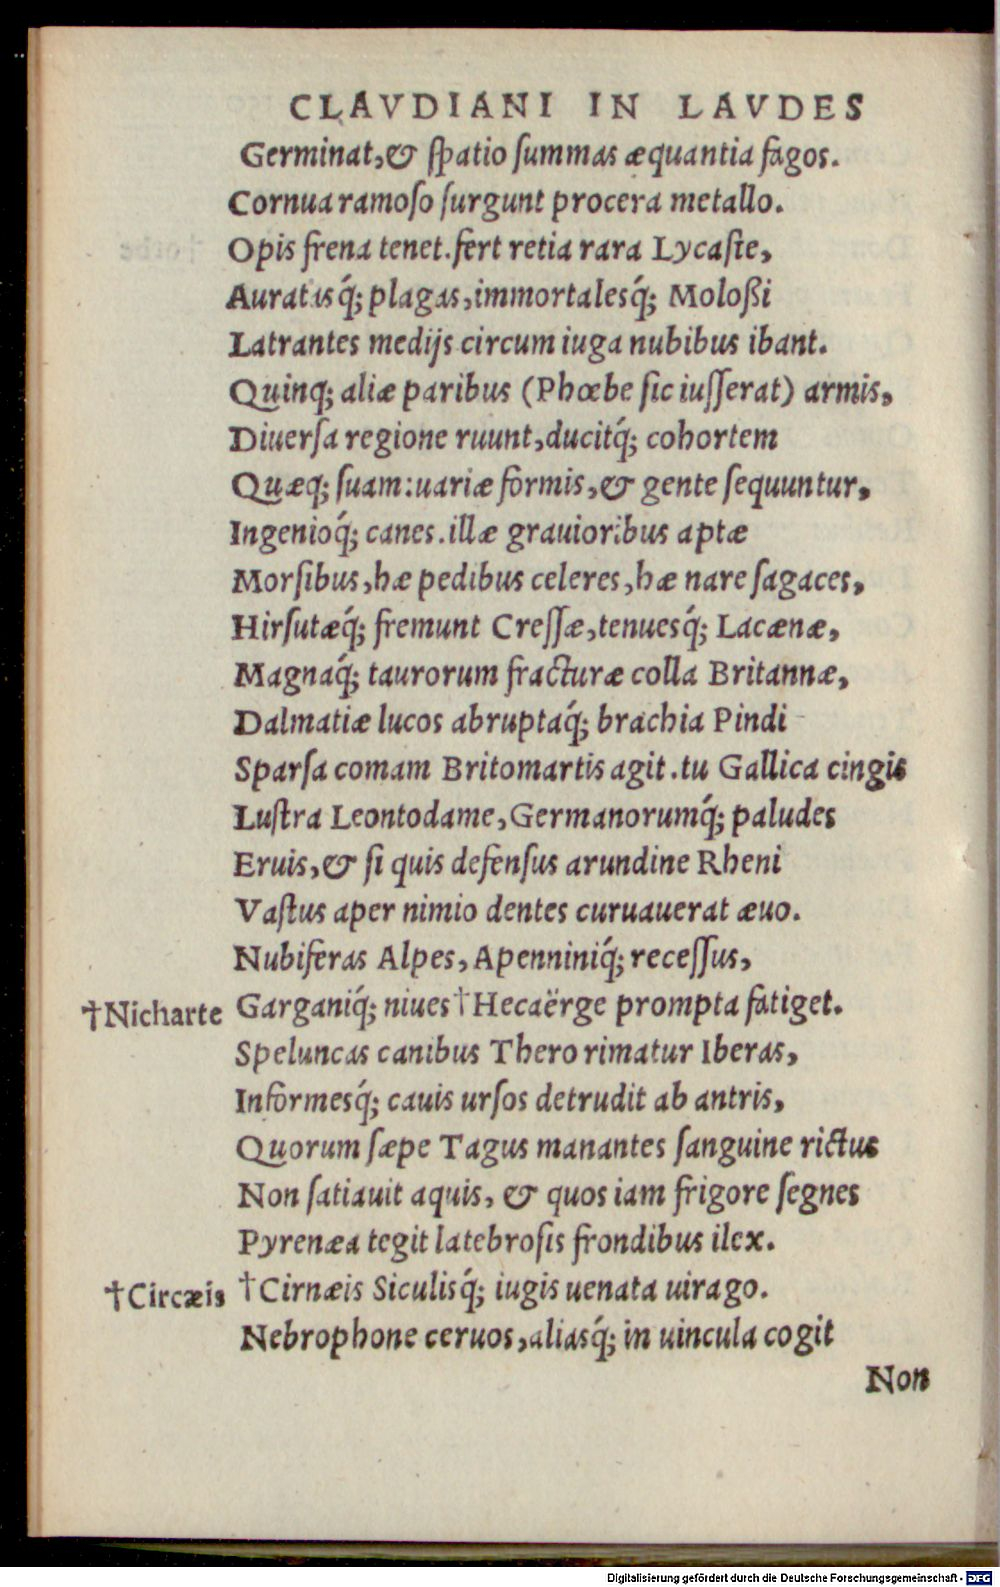 CLAVDIANI IN LAVDES
Germinat,& ſpatio ſummas æquantia fagos.
Cornua ramoſo ſurgunt procera metallo.
Opis frena tenet.fert retia rara Lycaſte,
Auratasq́; plagas,immortalesq́; Moloßi
Latrantes medijs circum iuga nubibus ibant.
Quinq; aliæ paribus (Phœbe ſic iuſſerat) armis,
Diuerſa regione ruunt,ducitq́; cohortem
Quæq; ſuam:uariæ formis,& gente ſequuntur,
Ingenioq́; canes.illæ grauioribus aptæ
Morſibus,hæ pedibus celeres,hæ nare ſagaces,
Hirſutæq́; fremunt Creſſæ,tenuesq́; Lacænæ,
Magnaq́; taurorum fracturæ colla Britannæ,
Dalmatiæ lucos abruptaq́; brachia Pindi
Sparſa comam Britomartis agit.tu Gallica cingis
Luſtra Leontodame,Germanorumq́; paludes
Eruis,& ſi quis defenſus arundine Rheni
Vaſtus aper nimio dentes curuauerat æuo.
Nubiferas Alpes,Apenniniq́; receſſus,
†Nicharte Garganiq́; niues †Hecaërge prompta fatiget.
Speluncas canibus Thero rimatur Iberas,
Informesq́; cauis urſos detrudit ab antris,
Quorum ſæpe Tagus manantes ſanguine rictus
Non ſatiauit aquis, & quos iam frigore ſegnes
Pyrenæa tegit latebroſis frondibus ilex.
†Circæis †Cirnæis Siculisq́; iugis uenata uirago.
Nebrophone ceruos,aliasq́; in uincula cogit
Non
Digitalisierung gefördert durch die Deutsche Forschungsgemeinschaft - DFG